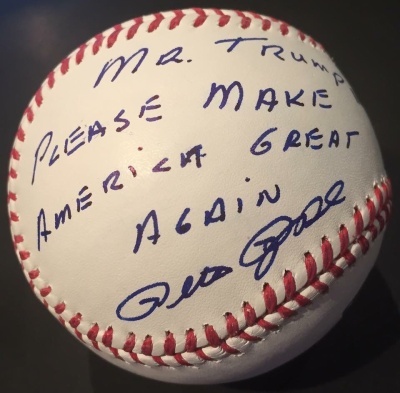 MR. TRUMP
PLEASE MAKE
AMERICA GREAT
AGAIN
Pete Rose